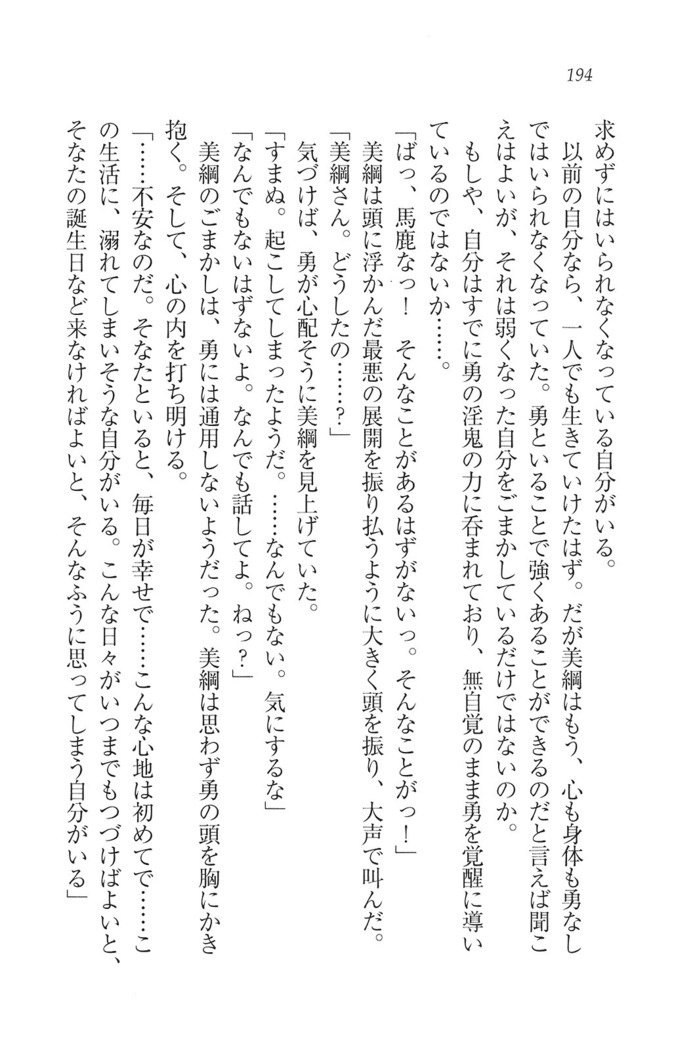 194
求めずにはいられなくなっている自分がいる。
以前の自分なら、一人でも生きていけたはず。だが美綱はもう、心も身体も勇なし
ではいられなくなっていた。勇といることで強くあることができるのだと言えば聞こ
えはよいが、それは弱くなった自分をごまかしているだけではないのか。
もしや、自分はすでに勇の淫鬼の力に呑まれており、無自覚のまま勇を覚醒に導い
ているのではないか……。
「ばっ、馬鹿なっ！　そんなことがあるはずがないっ。そんなことがっ！」
美綱は頭に浮かんだ最悪の展開を振り払うように大きく頭を振り、大声で叫んだ。
「美綱さん。どうしたの……？」
気づけば、勇が心配そうに美綱を見上げていた。
「すまぬ。起こしてしまったようだ。……なんでもない。気にするな」
「なんでもないはずないよ。なんでも話してよ。ねっ？」
美綱のごまかしは、勇には通用しないようだった。美綱は思わず勇の頭を胸にかき
抱く。そして、心の内を打ち明ける。
「……不安なのだ。そなたといると、毎日が幸せで……こんな心地は初めてで……こ
の生活に、溺れてしまいそうな自分がいる。こんな日々がいつまでもつづけばよいと、
そなたの誕生日など来なければよいと、そんなふうに思ってしまう自分がいる」